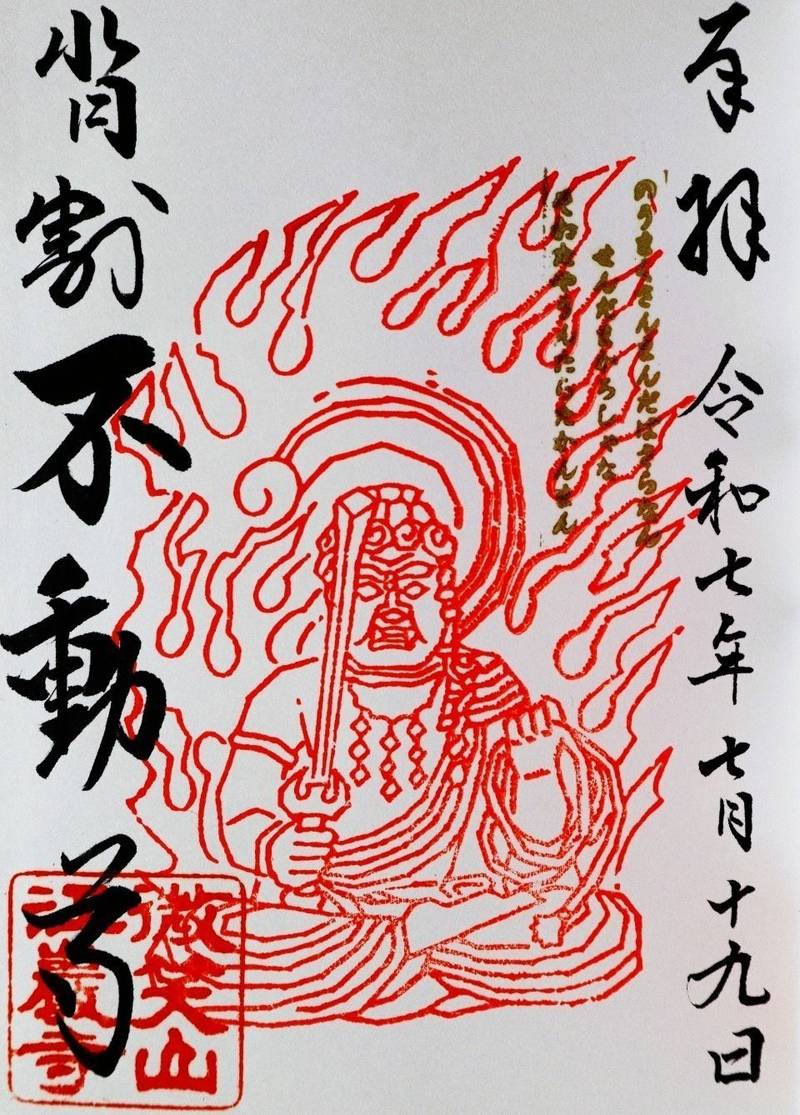 奉拝 令和七年七月十九日
のうまくさんまんだばさらなん
せんだまかろしゃな
そわたやうんたらたかんまん
背割不動尊
微笑山
巖寺